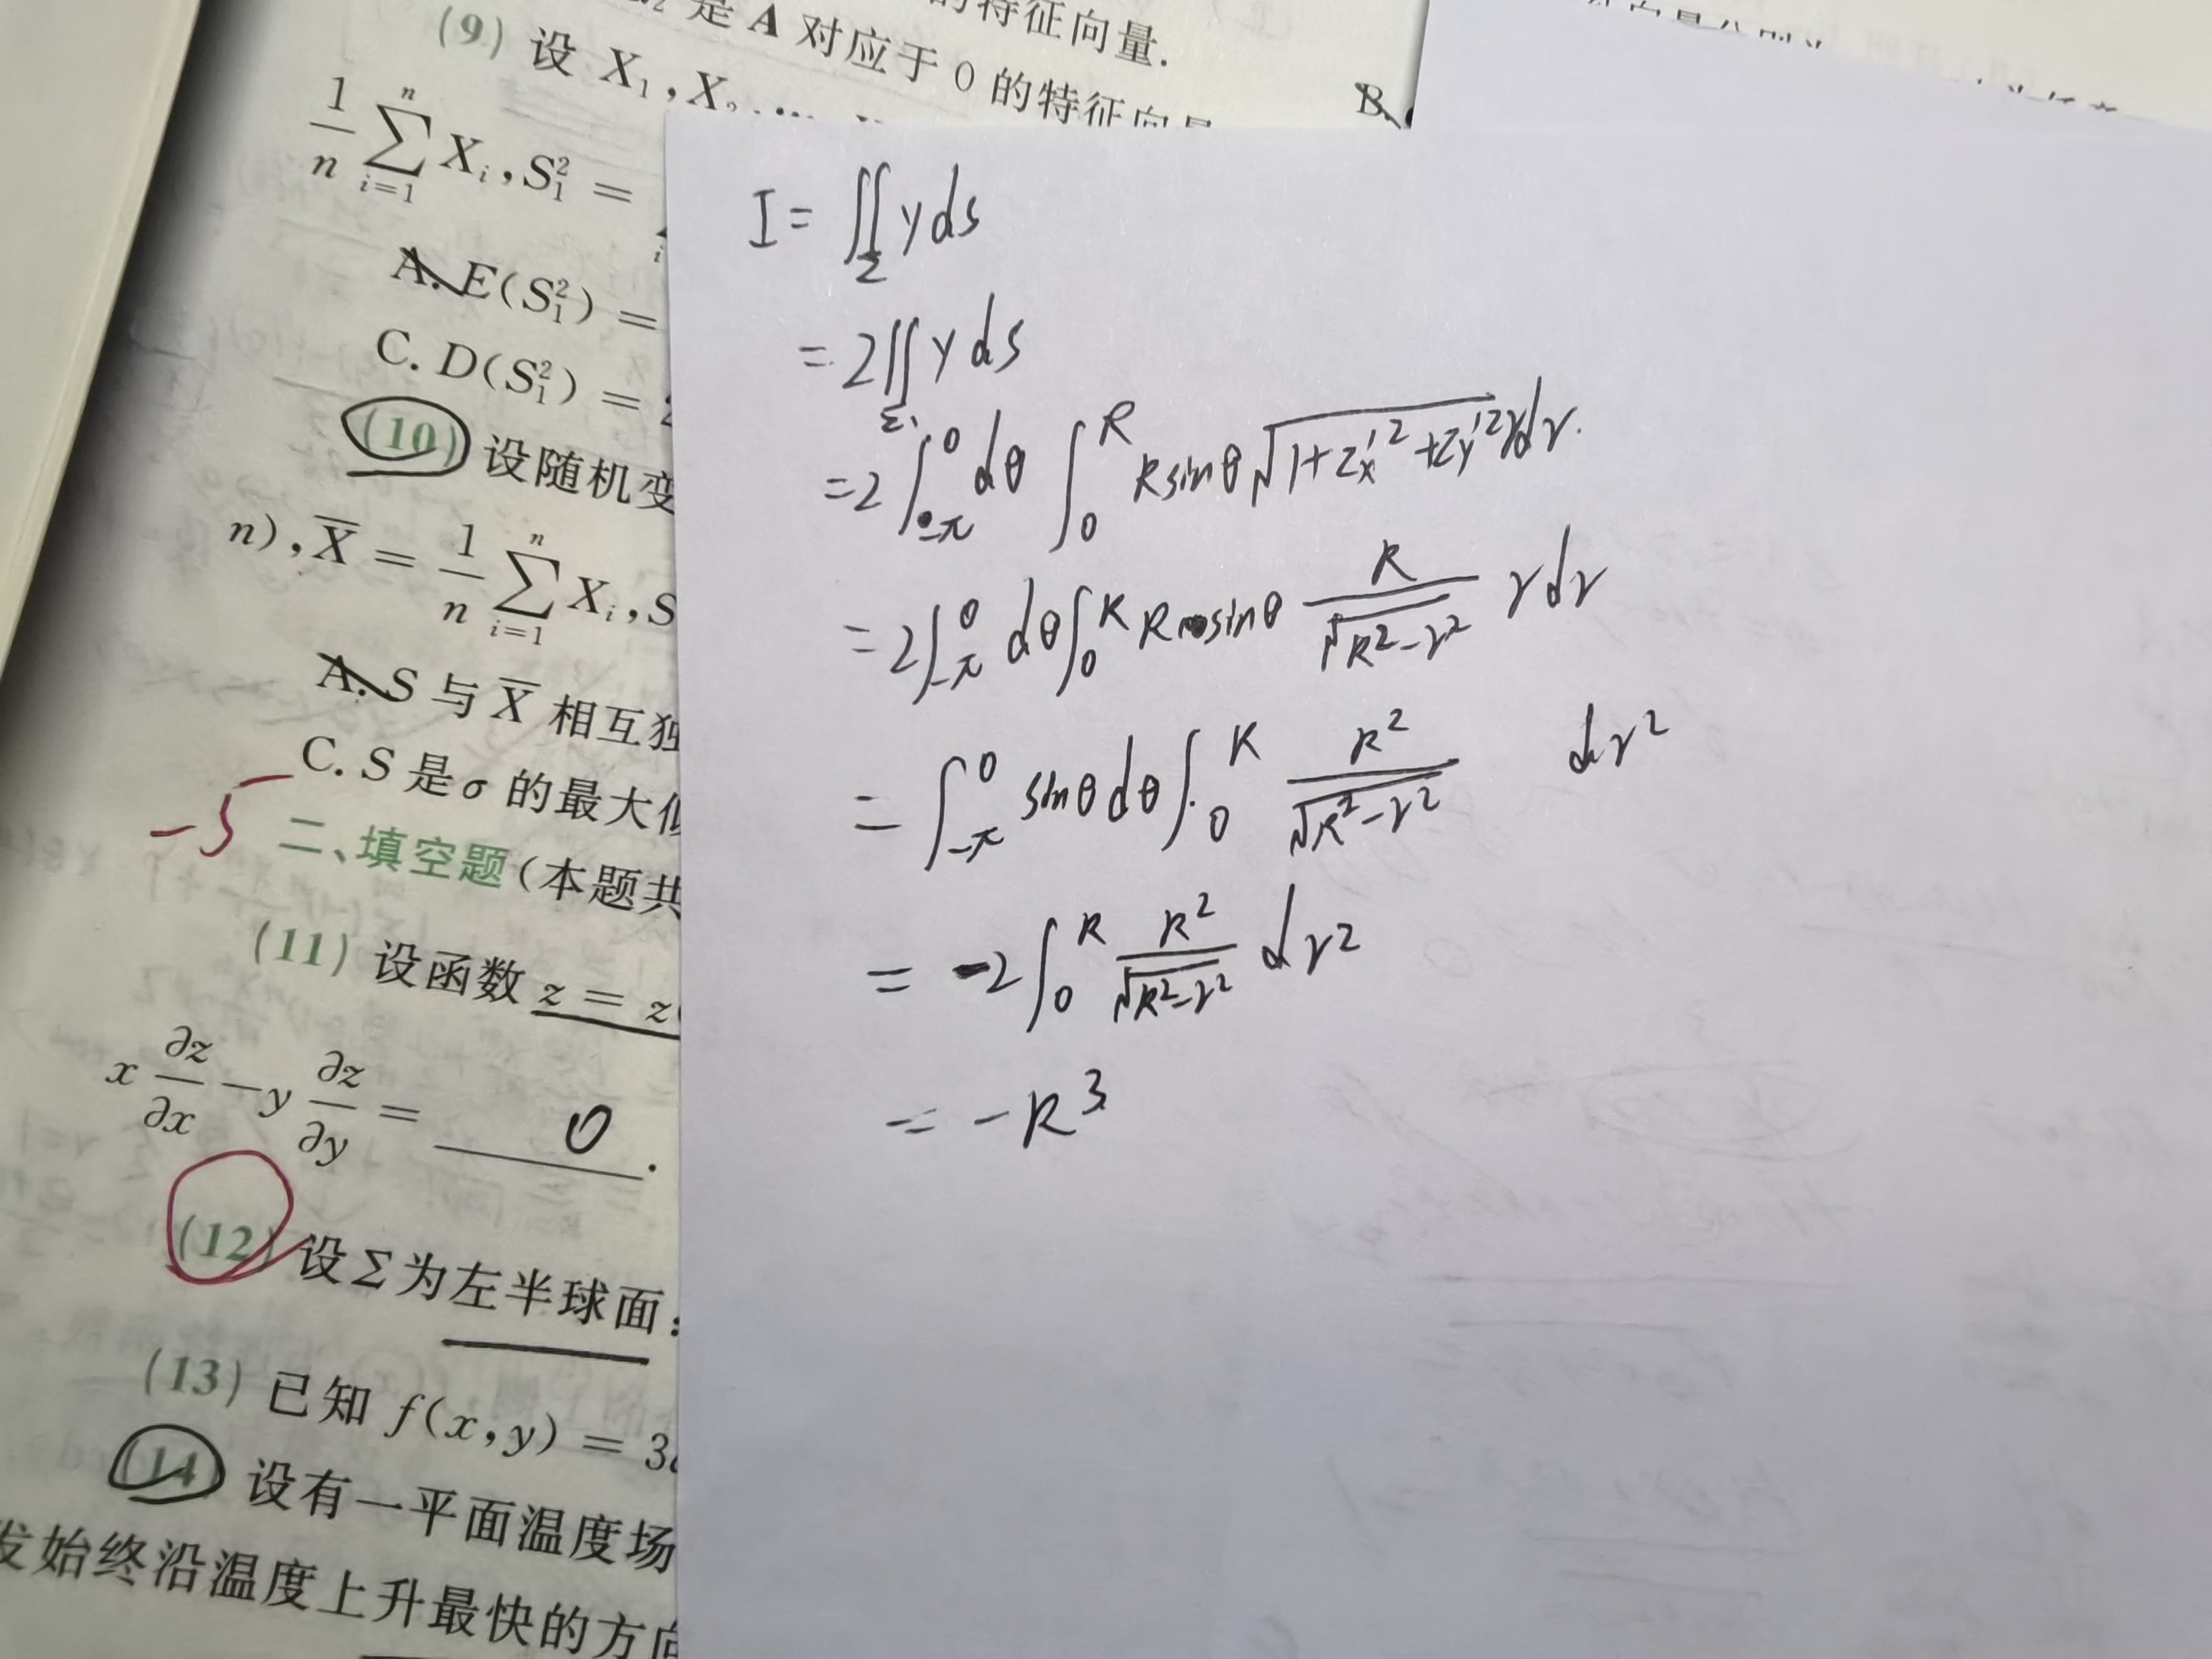 的特征向量.
是 A 对应于 0 的特征向量
(9) 设 X₁, X₂, ...
B.
1/n ∑_{i=1}^{n} X_i, S₁² =
A. E(S₁²) =
C. D(S₁²) =
(10) 设随机变
n), X̄ = 1/n ∑_{i=1}^{n} X_i, S
A. S 与 X̄ 相互独
C. S 是 σ 的最大似
-5
二、填空题(本题共
(11) 设函数 z = z(
x ∂z/∂x − y ∂z/∂y = 0 .
(12) 设 Σ 为左半球面:
(13) 已知 f(x, y) = 3
(14) 设有一平面温度场
发始终沿温度上升最快的方向
I = ∬_Σ y ds
= 2∬_{Σ₁} y ds
= 2∫_{-π}^{0} dθ ∫_0^R R sinθ √(1+z'_x² + z'_y²) r dr.
= 2∫_{-π}^{0} dθ ∫_0^R R sinθ R/√(R²−r²) r dr
= ∫_{-π}^{0} sinθ dθ ∫_0^R R²/√(R²−r²) dr²
= -2∫_0^R R²/√(R²−r²) dr²
= -R³